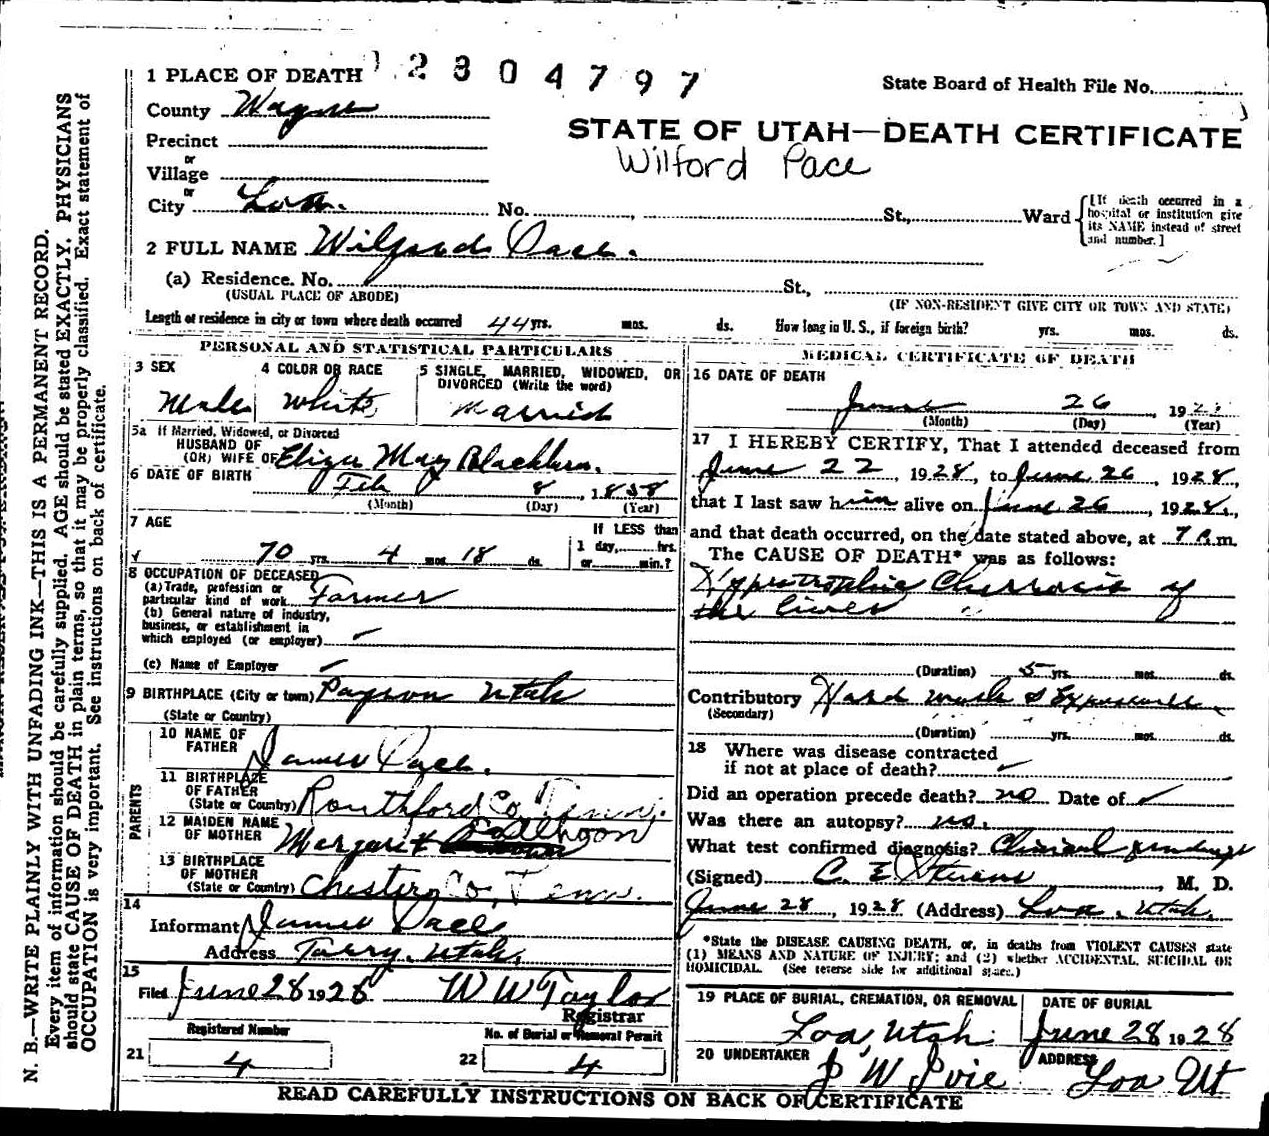 2304797
1 PLACE OF DEATH
State Board of Health File No.
County Wayne
STATE OF UTAH—DEATH CERTIFICATE
Precinct
Wilford Pace
or
Village
or
City Loa. No. , St., Ward
[If death occurred in a
hospital or institution give
its NAME instead of street
and number.]
2 FULL NAME Wilford Pace.
(a) Residence. No. St.,
(USUAL PLACE OF ABODE) (IF NON-RESIDENT GIVE CITY OR TOWN AND STATE)
Length of residence in city or town where death occurred 44 yrs. mos. ds. How long in U. S., if foreign birth? yrs. mos. ds.
PERSONAL AND STATISTICAL PARTICULARS
3 SEX 4 COLOR OR RACE 5 SINGLE, MARRIED, WIDOWED, OR
DIVORCED (Write the word)
Male White Married
5a If Married, Widowed, or Divorced
HUSBAND OF
(OR) WIFE OF Eliza May Blackburn.
6 DATE OF BIRTH
Feb 8, 1858
(Month) (Day) (Year)
7 AGE
If LESS than
1 day, hrs.
70 yrs. 4 mos. 18 ds. or min.?
8 OCCUPATION OF DECEASED
(a) Trade, profession or
particular kind of work Farmer
(b) General nature of industry,
business, or establishment in
which employed (or employer)
(c) Name of Employer
9 BIRTHPLACE (City or town) Payson Utah
(State or Country)
PARENTS
10 NAME OF
FATHER James Pace.
11 BIRTHPLACE
OF FATHER
(State or Country) Routhford Co, Tenn.
12 MAIDEN NAME
OF MOTHER Margaret Calhoon
13 BIRTHPLACE
OF MOTHER
(State or Country) Chester Co, Tenn.
14
Informant James Pace
Address Torry, Utah.
15
Filed June 28 1928 W W Taylor
Registrar
Registered Number No. of Burial or Removal Permit
21 4 22 4
MEDICAL CERTIFICATE OF DEATH
16 DATE OF DEATH
June 26 1928
(Month) (Day) (Year)
17 I HEREBY CERTIFY, That I attended deceased from
June 22, 1928, to June 26, 1928,
that I last saw him alive on June 26, 1928,
and that death occurred, on the date stated above, at 7 P.m.
The CAUSE OF DEATH* was as follows:
Hypertrophic Cherrosis of
the liver
(Duration) 5 yrs. mos. ds.
Contributory Hard work & Exposure
(Secondary)
(Duration) yrs. mos. ds.
18 Where was disease contracted
if not at place of death?
Did an operation precede death? no Date of
Was there an autopsy? no.
What test confirmed diagnosis? Clinical findings
(Signed) C. E. Stevens, M. D.
June 28, 1928 (Address) Loa, Utah.
*State the DISEASE CAUSING DEATH, or, in deaths from VIOLENT CAUSES state
(1) MEANS AND NATURE OF INJURY; and (2) whether ACCIDENTAL, SUICIDAL OR
HOMICIDAL. (See reverse side for additional space.)
19 PLACE OF BURIAL, CREMATION, OR REMOVAL DATE OF BURIAL
Loa, Utah June 28 1928
20 UNDERTAKER ADDRESS
W Loa Ut
READ CAREFULLY INSTRUCTIONS ON BACK OF CERTIFICATE
N. B.—WRITE PLAINLY WITH UNFADING INK—THIS IS A PERMANENT RECORD.
Every item of information should be carefully supplied. AGE should be stated EXACTLY. PHYSICIANS
should state CAUSE OF DEATH in plain terms, so that it may be properly classified. Exact statement of
OCCUPATION is very important. See instructions on back of certificate.